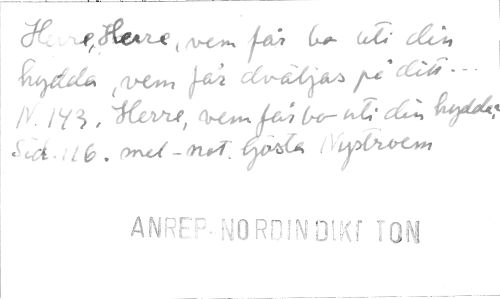 Herre, Herre, vem får bo uti din
hydda, vem får dväljas på ditt...
N. 143. Herre, vem får bo uti din hydda?
Sid. 116. mel-not. Gösta Nystroem
ANREP-NORDIN DIKT TON